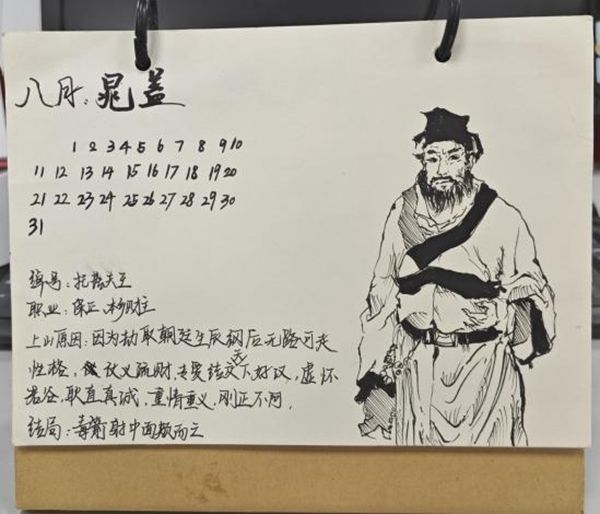 八月：晁盖
1 2 3 4 5 6 7 8 9 10
11 12 13 14 15 16 17 18 19 20
21 22 23 24 25 26 27 28 29 30
31
绰号：托塔天王
职业：保正、乡财主
上山原因：因为劫取生辰纲后无路可走
性格，仗义疏财，专爱结交天下好汉，虚怀
若谷，耿直真诚，重情重义，刚正不阿，
结局：毒箭射中面颊而亡